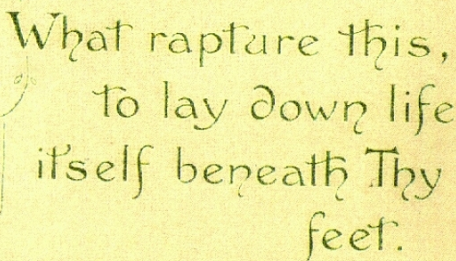 What rapture this,
to lay down life
itself beneath Thy
feet.